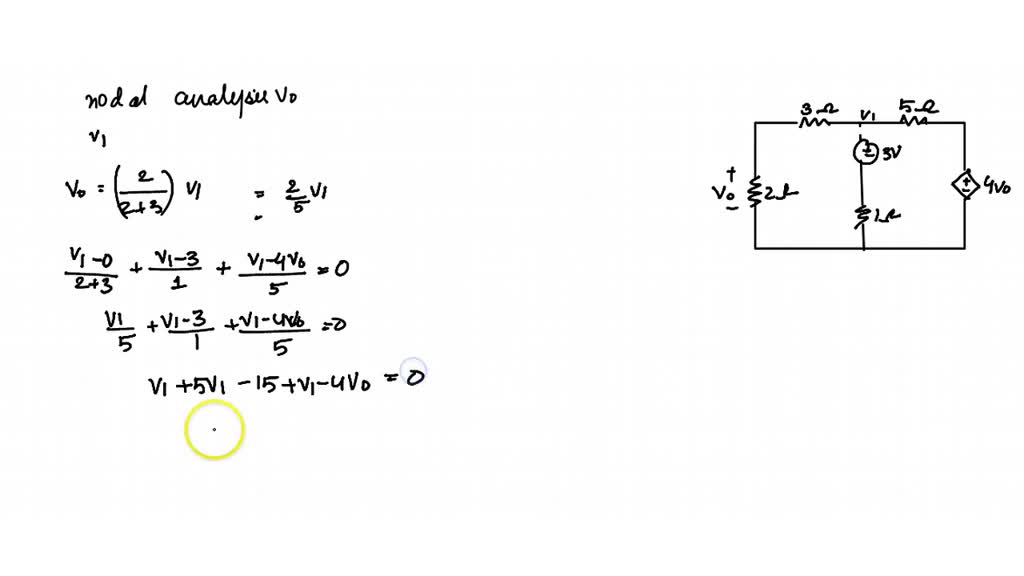 nodal analysis V0
V1
V0 = (2/(2+3)) V1 = 2/5 V1
(V1-0)/(2+3) + (V1-3)/1 + (V1-4V0)/5 = 0
V1/5 + (V1-3)/1 + (V1-4V0)/5 = 0
V1 + 5V1 - 15 + V1 - 4V0 = 0
3Ω V1 5Ω
+ 3V
+
V0 2Ω + 4V0
- 1Ω